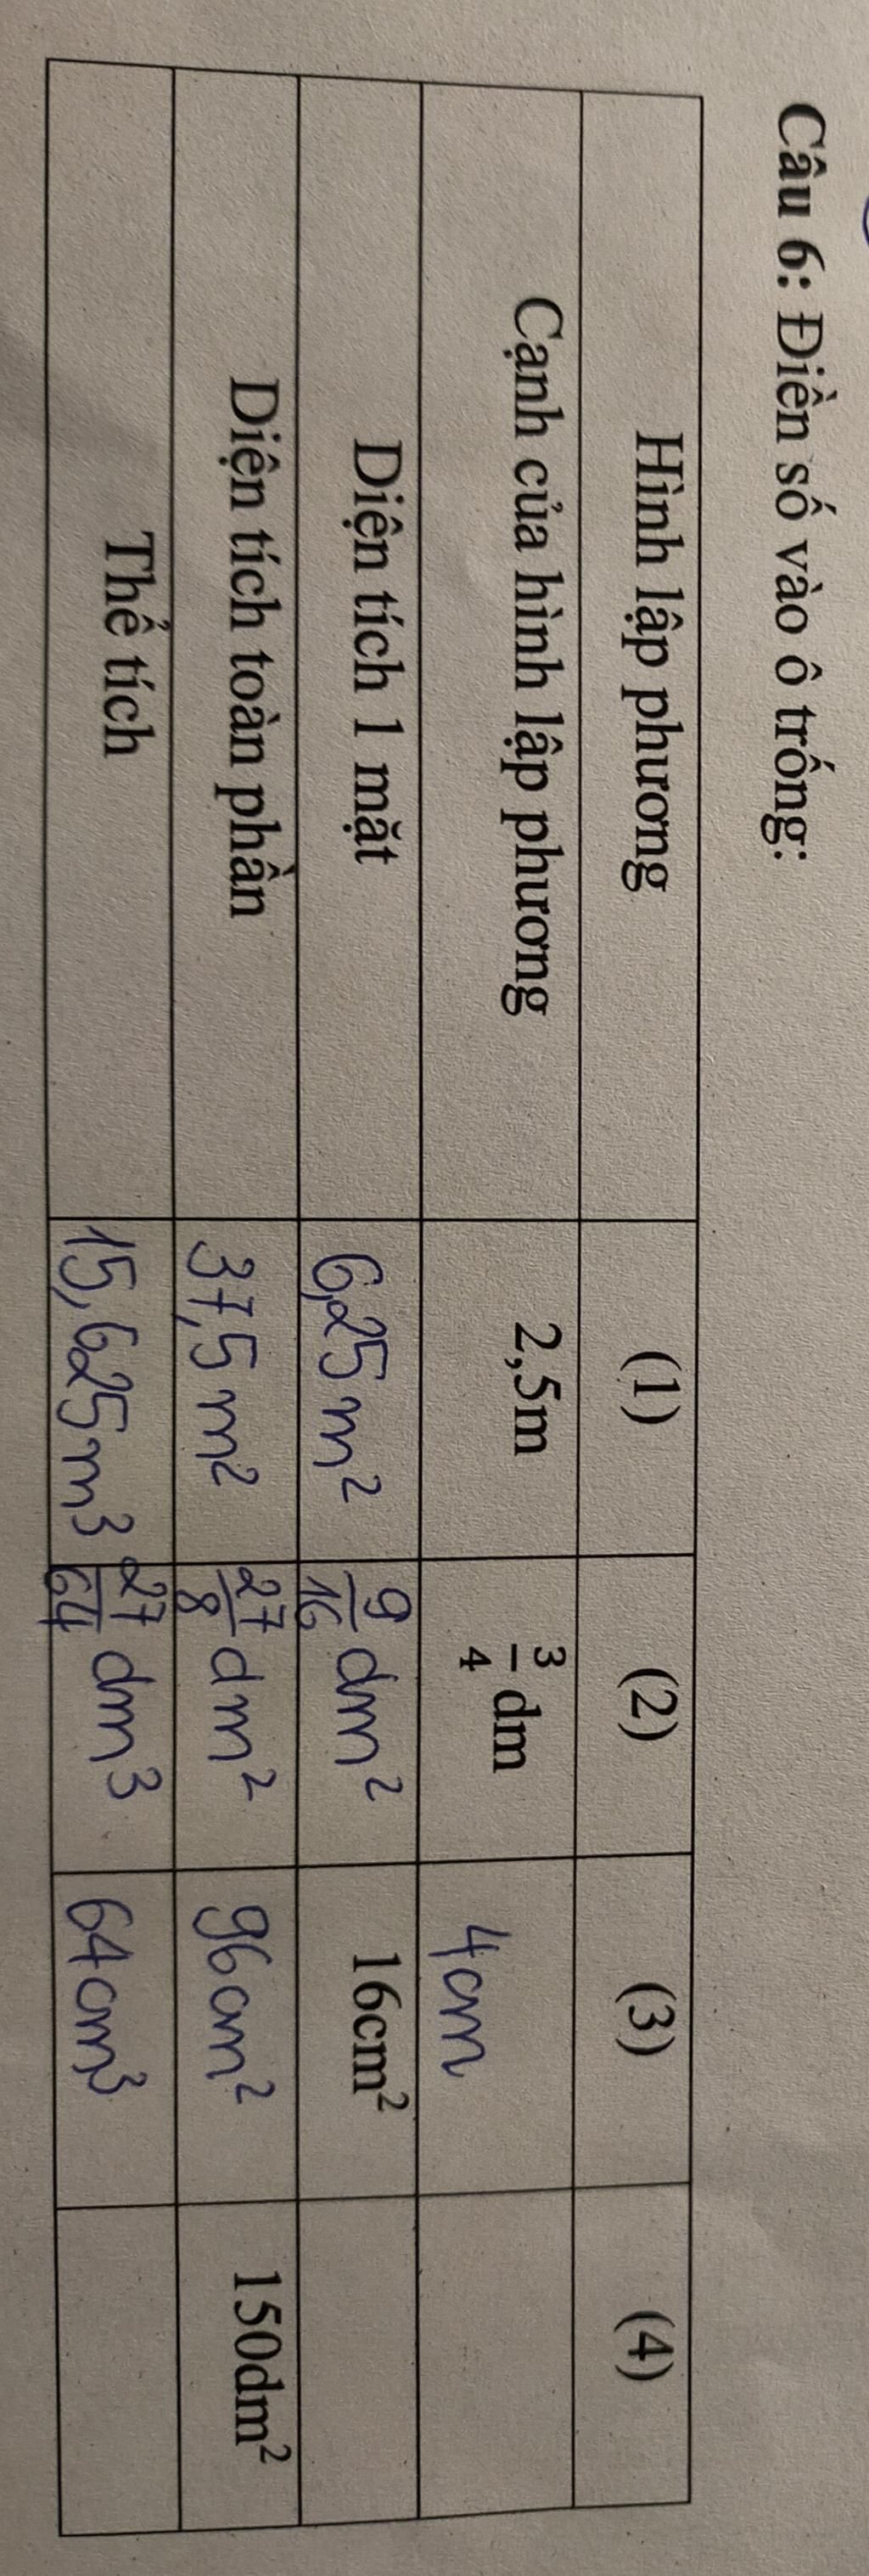 Câu 6: Điền số vào ô trống:
Hình lập phương (1) (2) (3) (4)
Cạnh của hình lập phương 2,5m 3/4 dm 4cm
Diện tích 1 mặt 6,25m² 9/16 dm² 16cm²
Diện tích toàn phần 37,5m² 27/8 dm² 96cm² 150dm²
Thể tích 15,625m³ 27/64 dm³ 64cm³